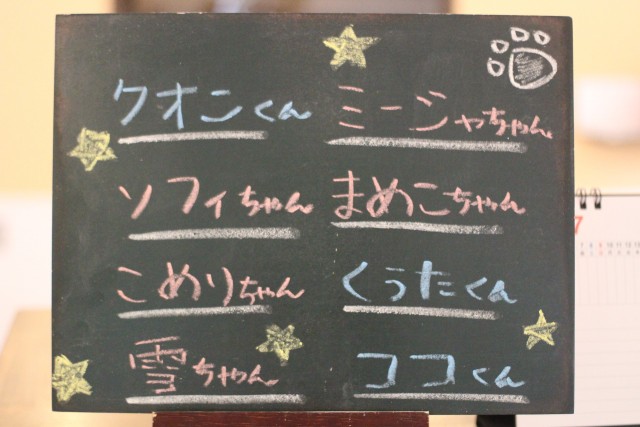 クオンくん ミーシャちゃん
ソフィちゃん まめこちゃん
こめりちゃん くうたくん
雪ちゃん ココくん
7